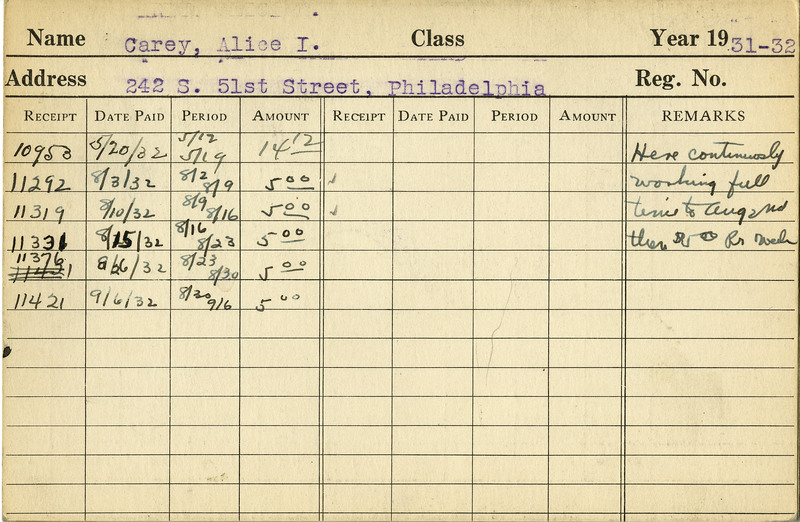 Name Carey, Alice I. Class Year 19 31-32
Address 242 S. 51st Street, Philadelphia Reg. No.
RECEIPT DATE PAID PERIOD AMOUNT RECEIPT DATE PAID PERIOD AMOUNT REMARKS
10953 5/20/32 5/12 5/19 14 12 Here continuously
11292 8/3/32 8/2 8/9 5 00 working full
11319 8/10/32 8/9 8/16 5 00 time to Aug 2nd
11331 8/15/32 8/16 8/23 5 00 then $5 00 Pr Week
11376 8/26/32 8/23 8/30 5 00
11421 9/6/32 8/30 9/6 5 00